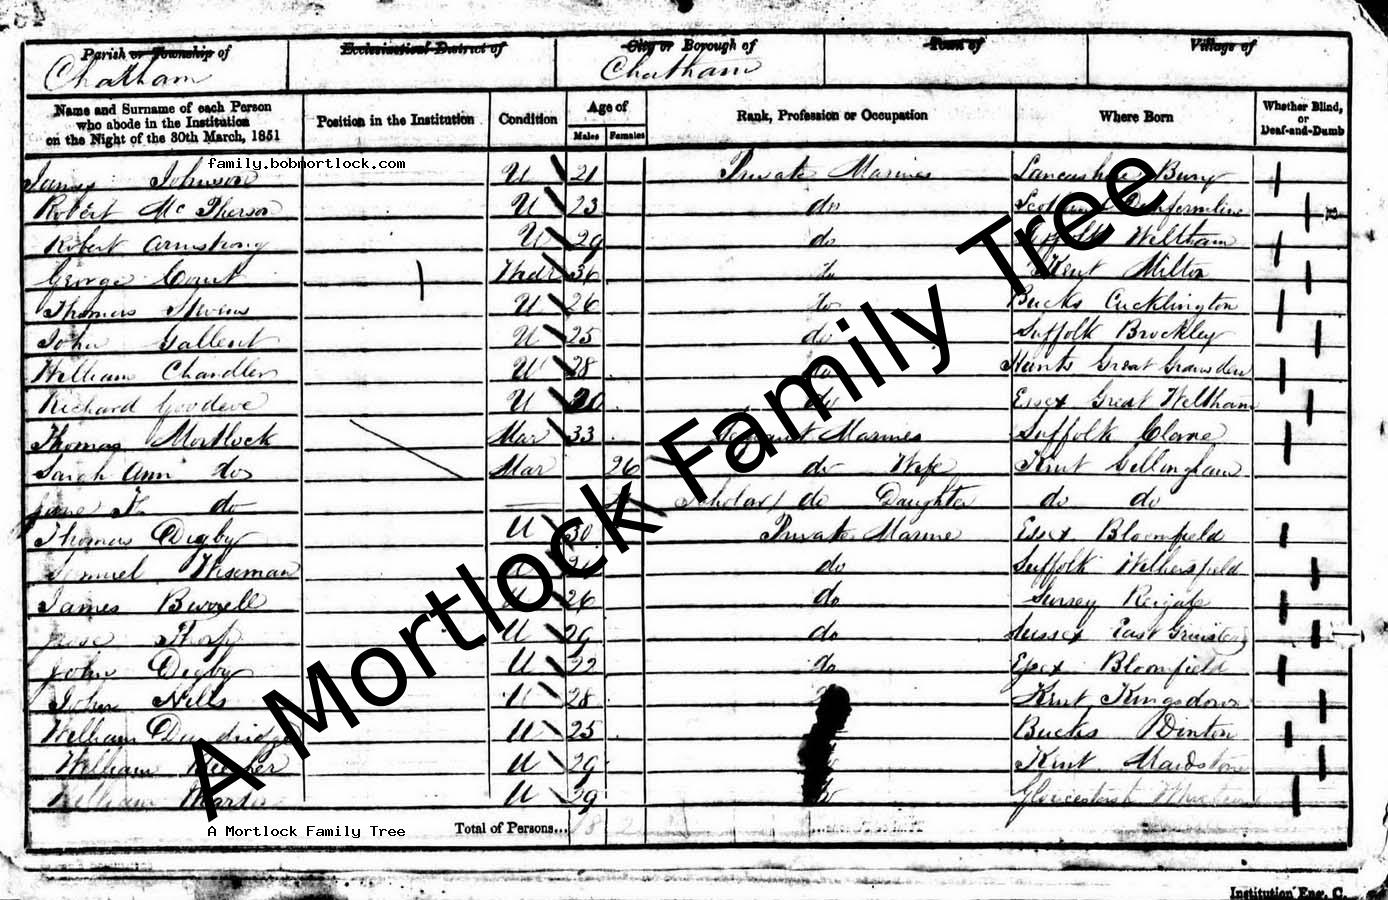 Parish or Township of Ecclesiastical District of City or Borough of Town of Village of
Chatham Chatham
Name and Surname of each Person who abode in the Institution on the Night of the 30th March, 1851 Position in the Institution Condition Age of Males Females Rank, Profession or Occupation Where Born Whether Blind, or Deaf-and-Dumb
family.bobmortlock.com
James Johnson U 21 Private Marines Lancashire Bury
Robert Mc Pherson U 23 do Scotland Dunfermline
Robert Armstrong U 29 do Suffolk Weltham
George Court Widr 36 do Kent Milton
Thomas Stevens U 26 do Bucks Cucklington
John Gallent U 25 do Suffolk Brockley
William Chandler U 28 do Hunts Great Gransden
Richard Goodeve U 20 do Essex Great Weltham
Thomas Mortlock Mar 33 Marines Suffolk Clare
Sarah Ann do Mar 26 do Wife Kent Gillingham
Jane do Scholar do Daughter do do
Thomas Digby U 30 Private Marine Essex Bloomfield
Samuel Wiseman U do Suffolk Wethersfield
James Burrell U 26 do Surrey Reigate
Jesse Thorp U 29 do Sussex East Grinstead
John Digby U 22 do Essex Bloomfield
John Nells U 28 Kent Kingsdown
William Dandridge U 25 Bucks Dinton
William U 29 Kent Maidstone
William Martin U 29 do Gloucestersh
A Mortlock Family Tree
A Mortlock Family Tree Total of Persons... 18 2
Institution Eng. C.